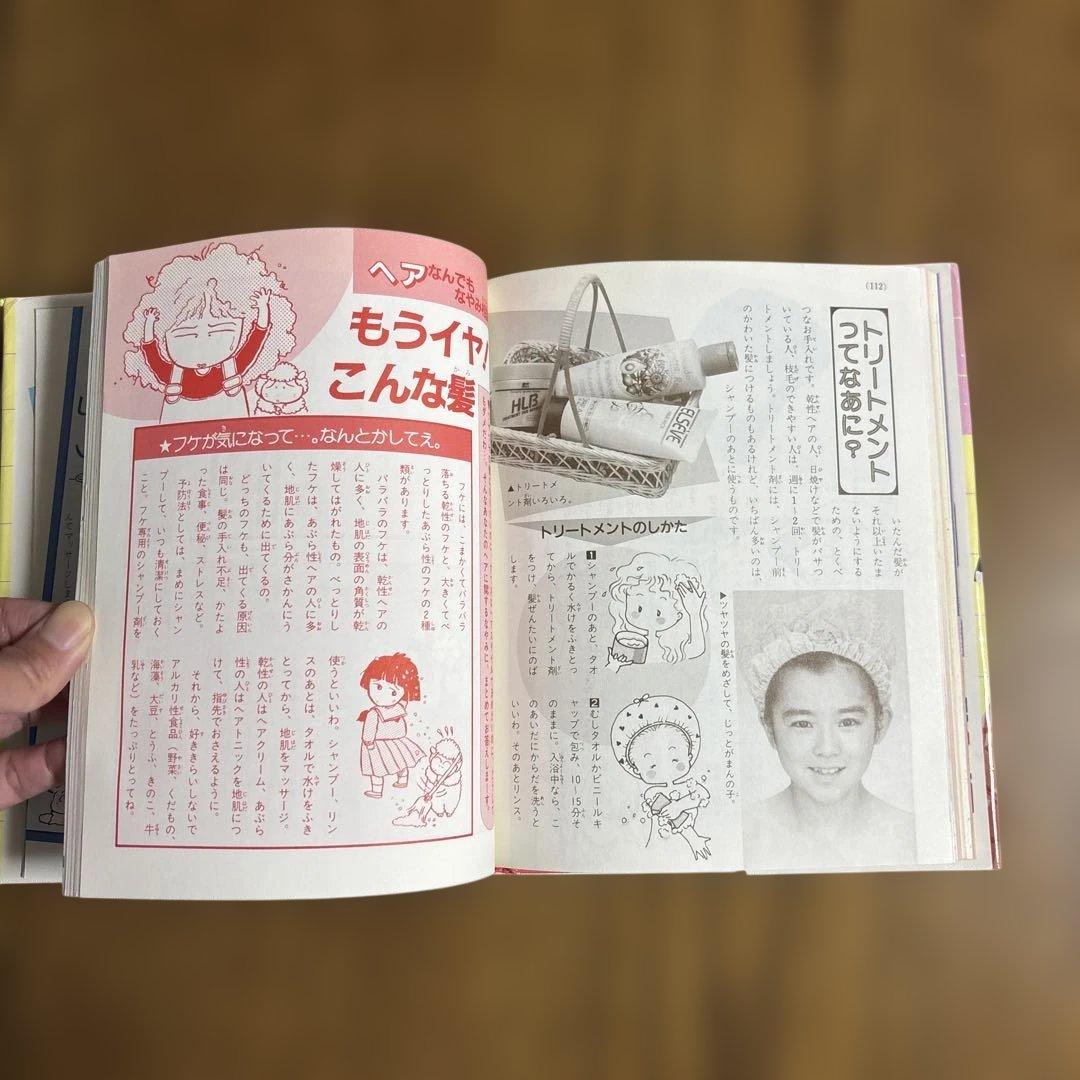 《112》
トリートメント
ってなあに?
いたんだ髪が
それ以上いたま
ないようにする
ための、とくべ
つなお手入れです。乾性ヘアの人、日焼けなどで髪がパサつ
いている人、枝毛のできやすい人は、週に1〜2回、トリー
トメントしましょう。トリートメント剤には、シャンプー前
のかわいた髪につけるものもあるけれど、いちばん多いのは、
シャンプーのあとに使うものです。
HLB
ELSEVE
▲トリートメ
ント剤いろいろ。
▶ツヤツヤの髪をめざして、じっとがまんの子。
トリートメントのしかた
1 シャンプーのあと、タオ
ルでかるく水けをふきとっ
てから、トリートメント剤
をつけ、髪ぜんたいにのば
します。
2 むしタオルかビニールキ
ャップで包み、10〜15分そ
のままに。入浴中なら、こ
のあいだにからだを洗うと
いいわ。そのあとリンス。
ヘアなんでも
なやみ
もうイヤ!
こんな髪
そんなあなたのヘアに関するなやみに、まとめてお答えします。
★フケが気になって…。なんとかしてえ。
フケには、こまかくてパラパラ
落ちる乾性のフケと、大きくてべ
っとりしたあぶら性のフケの2種
類があります。
パラパラのフケは、乾性ヘアの
人に多く、地肌の表面の角質が乾
燥してはがれたもの。べっとりし
たフケは、あぶら性ヘアの人に多
く、地肌にあぶら分がさかんにう
いてくるために出てくるの。
どっちのフケも、出てくる原因
は同じ。髪の手入れ不足、かたよ
った食事、便秘、ストレスなど。
予防法としては、まめにシャン
プーして、いつも清潔にしておく
こと。フケ専用のシャンプー剤を
使うといいわ。シャンプー、リン
スのあとは、タオルで水けをふき
とってから、地肌をマッサージ。
乾性の人はヘアクリーム、あぶら
性の人はヘアトニックを地肌につ
けて、指先でおさえるように。
それから、好ききらいしないで
アルカリ性食品(野菜、くだもの、
海藻、大豆、とうふ、きのこ、牛
乳など)をたっぷりとってね。